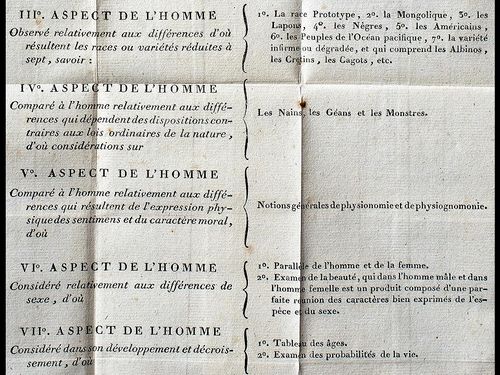 IIIº. ASPECT DE L'HOMME
Observé relativement aux différences d'où
résultent les races ou variétés réduites à
sept, savoir :
1º. La race Prototype, 2º. la Mongolique, 3º. les
Lapons, 4º. les Nègres, 5º. les Américains,
6º. les Peuples de l'Océan pacifique, 7º. la variété
infirme ou dégradée, et qui comprend les Albinos,
les Crétins, les Cagots, etc.
IVº. ASPECT DE L'HOMME
Comparé à l'homme relativement aux diffé-
rences qui dépendent des dispositions con-
traires aux lois ordinaires de la nature,
d'où considérations sur
Les Nains, les Géans et les Monstres.
Vº. ASPECT DE L'HOMME
Comparé à l'homme relativement aux diffé-
rences qui résultent de l'expression phy-
sique des sentimens et du caractère moral,
d'où
Notions générales de physionomie et de physiognomonie.
VIº. ASPECT DE L'HOMME
Considéré relativement aux différences de
sexe, d'où
1º. Parallèle de l'homme et de la femme.
2º. Examen de la beauté, qui dans l'homme mâle et dans
l'homme femelle est un produit composé d'une par-
faite réunion des caractères bien exprimés de l'es-
pèce et du sexe.
VIIº. ASPECT DE L'HOMME
Considéré dans son développement et décrois-
sement, d'où
1º. Tableau des âges.
2º. Examen des probabilités de la vie.